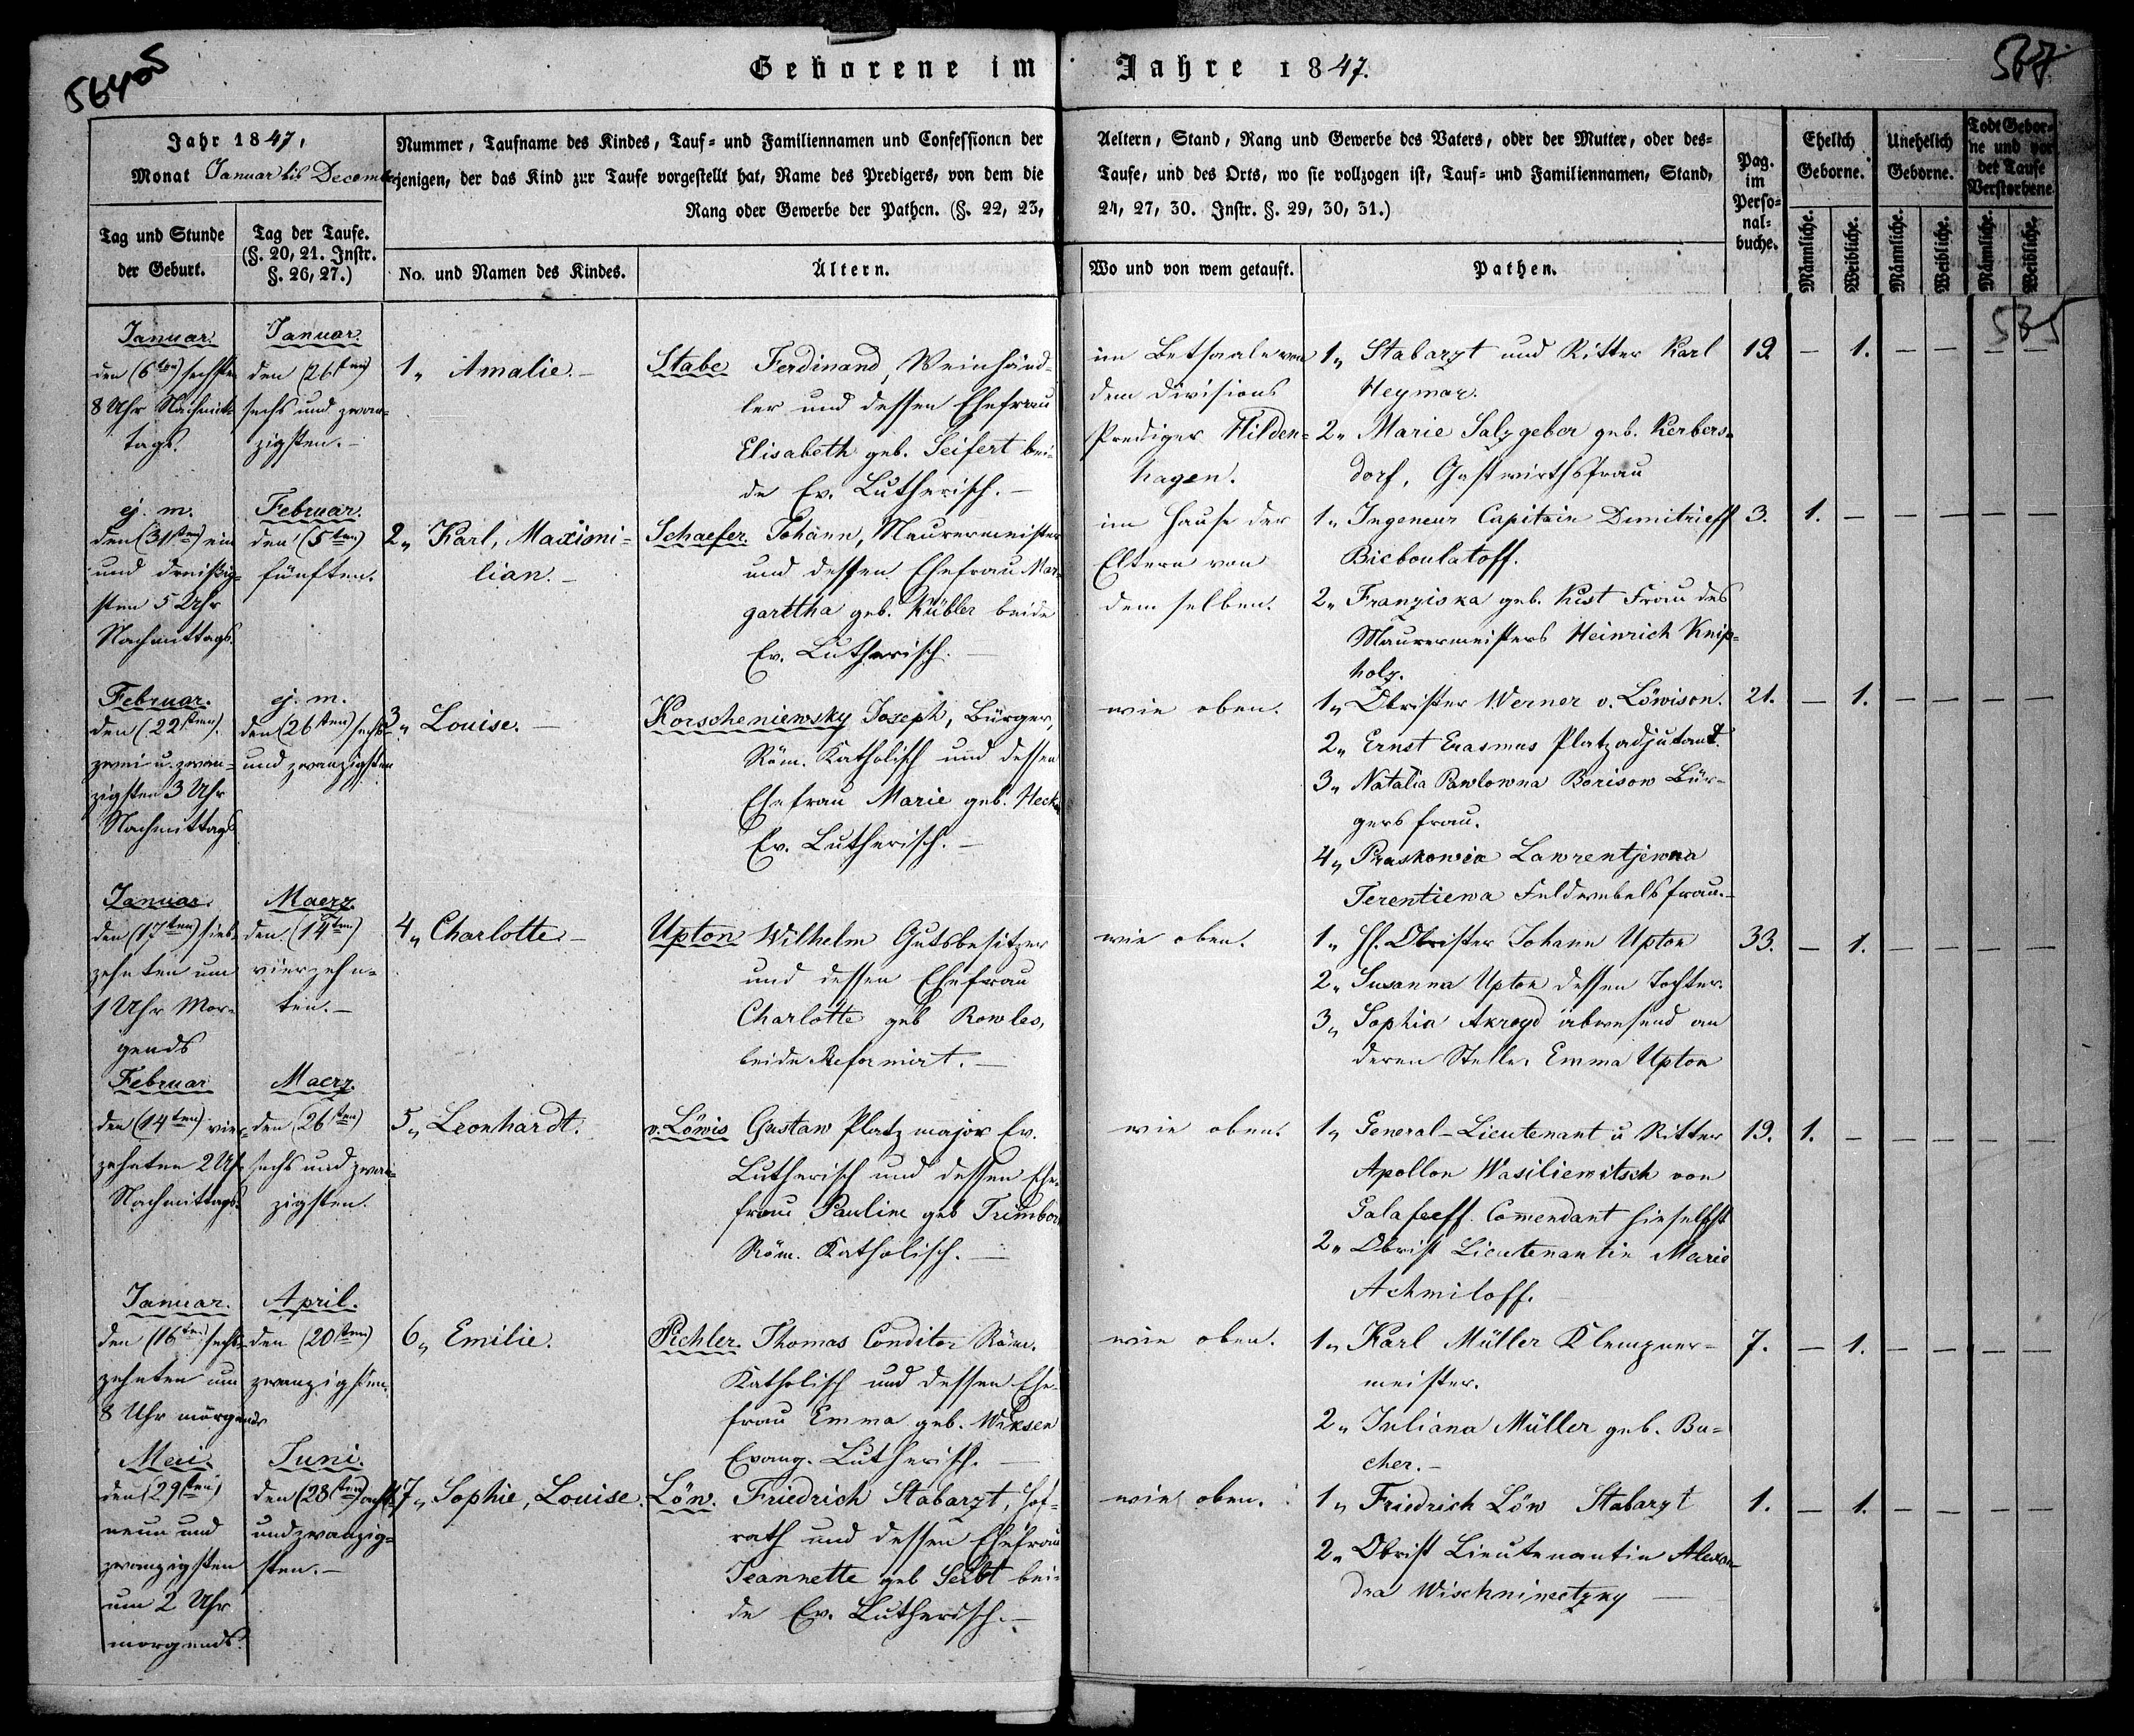 Geborene im Jahre 1847.
567
Jahr 1847,
Monat Januar bis December
Nummer, Taufname des Kindes, Tauf= und Familiennamen und Confessionen der Aeltern, Stand, Rang und Gewerbe des Vaters, oder der Mutter, oder des=
jenigen, der das Kind zur Taufe vorgestellt hat, Name des Predigers, von dem die Taufe, und des Orts, wo sie vollzogen ist, Tauf= und Familiennamen, Stand,
Rang oder Gewerbe der Pathen. (§. 22, 23, 24, 27, 30. Instr. §. 29, 30, 31.)
Tag und Stunde
der Geburt.
Tag der Taufe.
(§. 20, 21. Instr.
§. 26, 27.)
No. und Namen des Kindes.
Ältern.
Wo und von wem getauft.
Pathen.
Pag.
im
Perso=
nal=
buche.
Ehelich
Geborne.
Unehelich
Geborne.
Todt Gebor=
ne und vor
der Taufe
Verstorbene.
Männliche.
Weibliche.
Männliche.
Weibliche.
Männliche.
Weibliche.
535
Januar.
den (6ten) sechsten
8 Uhr Nachmit=
tags.
Januar.
den (26sten)
sechs und zwan=
zigsten.–
1„ Amalie.–
Stabe Ferdinand, Weinhänd=
ler und dessen Ehefrau
Elisabeth geb. Seifert bei=
de Ev. Lutherisch.–
im Betsaale von
dem Divisions
Prediger Hilden=
hagen.
1„ Stabarzt und Ritter Karl
Heymar.
2„ Marie Salzgeber geb. Kerbers=
dorf, Gastwirthsfrau
19. – 1. – – – –
ej. m.
den (31sten) ein
und dreißig=
sten 5 Uhr
Nachmittags.
Februar.
den (5ten)
fünften.
2„ Karl, Maximi=
lian.–
Schaefer. Johann, Maurermeister
und dessen Ehefrau Mar=
garetha geb. Kübler beide
Ev. Lutherisch.–
im Hause der
Eltern von
demselben.
1„ Ingeneur Capitain Dimitrieff
Bieboulatoff.
2„ Franziska geb. Kust Frau des
Maurermeisters Heinrich Knip=
holz.
3. 1. – – – – –
Februar.
den (22sten).
zwei u. zwan=
zigsten 3 Uhr
Nachmittags
ej. m.
den (26sten) sechs
und zwanzigsten
3„ Louise.–
Korscheniewsky Joseph, Bürger,
Röm. Katholisch und dessen
Ehefrau Marie geb.
Ev. Lutherisch.–
wie oben.
1„ Obrister Werner v. Löwison.
2„ Ernst Erasmus Platzadjutant.
3„ Natalia Pawlowna Borisow Bür=
gersfrau.
4„ Praskowia Lawrentjewna
Terentiewa Feldwebelsfrau.–
21. – 1. – – – –
Januar.
den (17ten) sieb=
zehnten um
1 Uhr Mor=
gends
Maerz.
den (14ten)
vierzehn=
ten.–
4„ Charlotte–
Upton Wilhelm Gutsbesitzer
und dessen Ehefrau
Charlotte geb Rowles,
beide Reformirt.–
wie oben.
1„ H. Obrister Johann Upton
2„ Susanna Upton dessen Tochter.
3„ Sophia Akroyd abwesend an
deren Stelle. Emma Upton
33. – 1. – – – –
Februar
den (14ten) vier=
zehnten 2 Uhr
Nachmittags.
Maerz.
den (26sten)
sechs und zwan=
zigsten.
5„ Leonhardt.
v. Löwis Gustaw Platzmajor Ev.
Lutherisch und dessen Ehe=
frau Pauline geb Trimborn
Röm. Katholisch.–
wie oben.
1„ General-Lieutenant u Ritter
Apollon Wasiliewitsch von
Galafeeff. Comendant hieselbst
2„ Obrist Lieutenantin Marie
Achmiloff.
19. 1. – – – – –
Januar.
den (16ten) sechs=
zehnten um
8 Uhr morgends
April.
den (20sten)
zwanzigsten.
6„ Emilie.
Pichler. Thomas Conditor Röm.
Katholisch und dessen Ehe=
frau Emma geb. Wiksen
Evang. Lutherisch.–
wie oben.
1„ Karl Müller Klempner=
meister.
2„ Juliana Müller geb. Bu=
cher.–
7. – 1. – – – –
Mai.
den (29sten)
neun und
zwanzigsten
um 2 Uhr
morgends.
Juni.
den (28sten) acht
und zwanzig=
sten.–
7„ Sophie, Louise.
Löw. Friedrich Stabarzt, Hof=
rath und dessen Ehefrau
Jeannette geb Seibt bei=
de Ev. Lutherisch.–
wie oben.
1„ Friedrich Löw Stabarzt
2„ Obrist Lieutenantin Alexan=
dra Wischninectzky –
1. – 1. – – – –